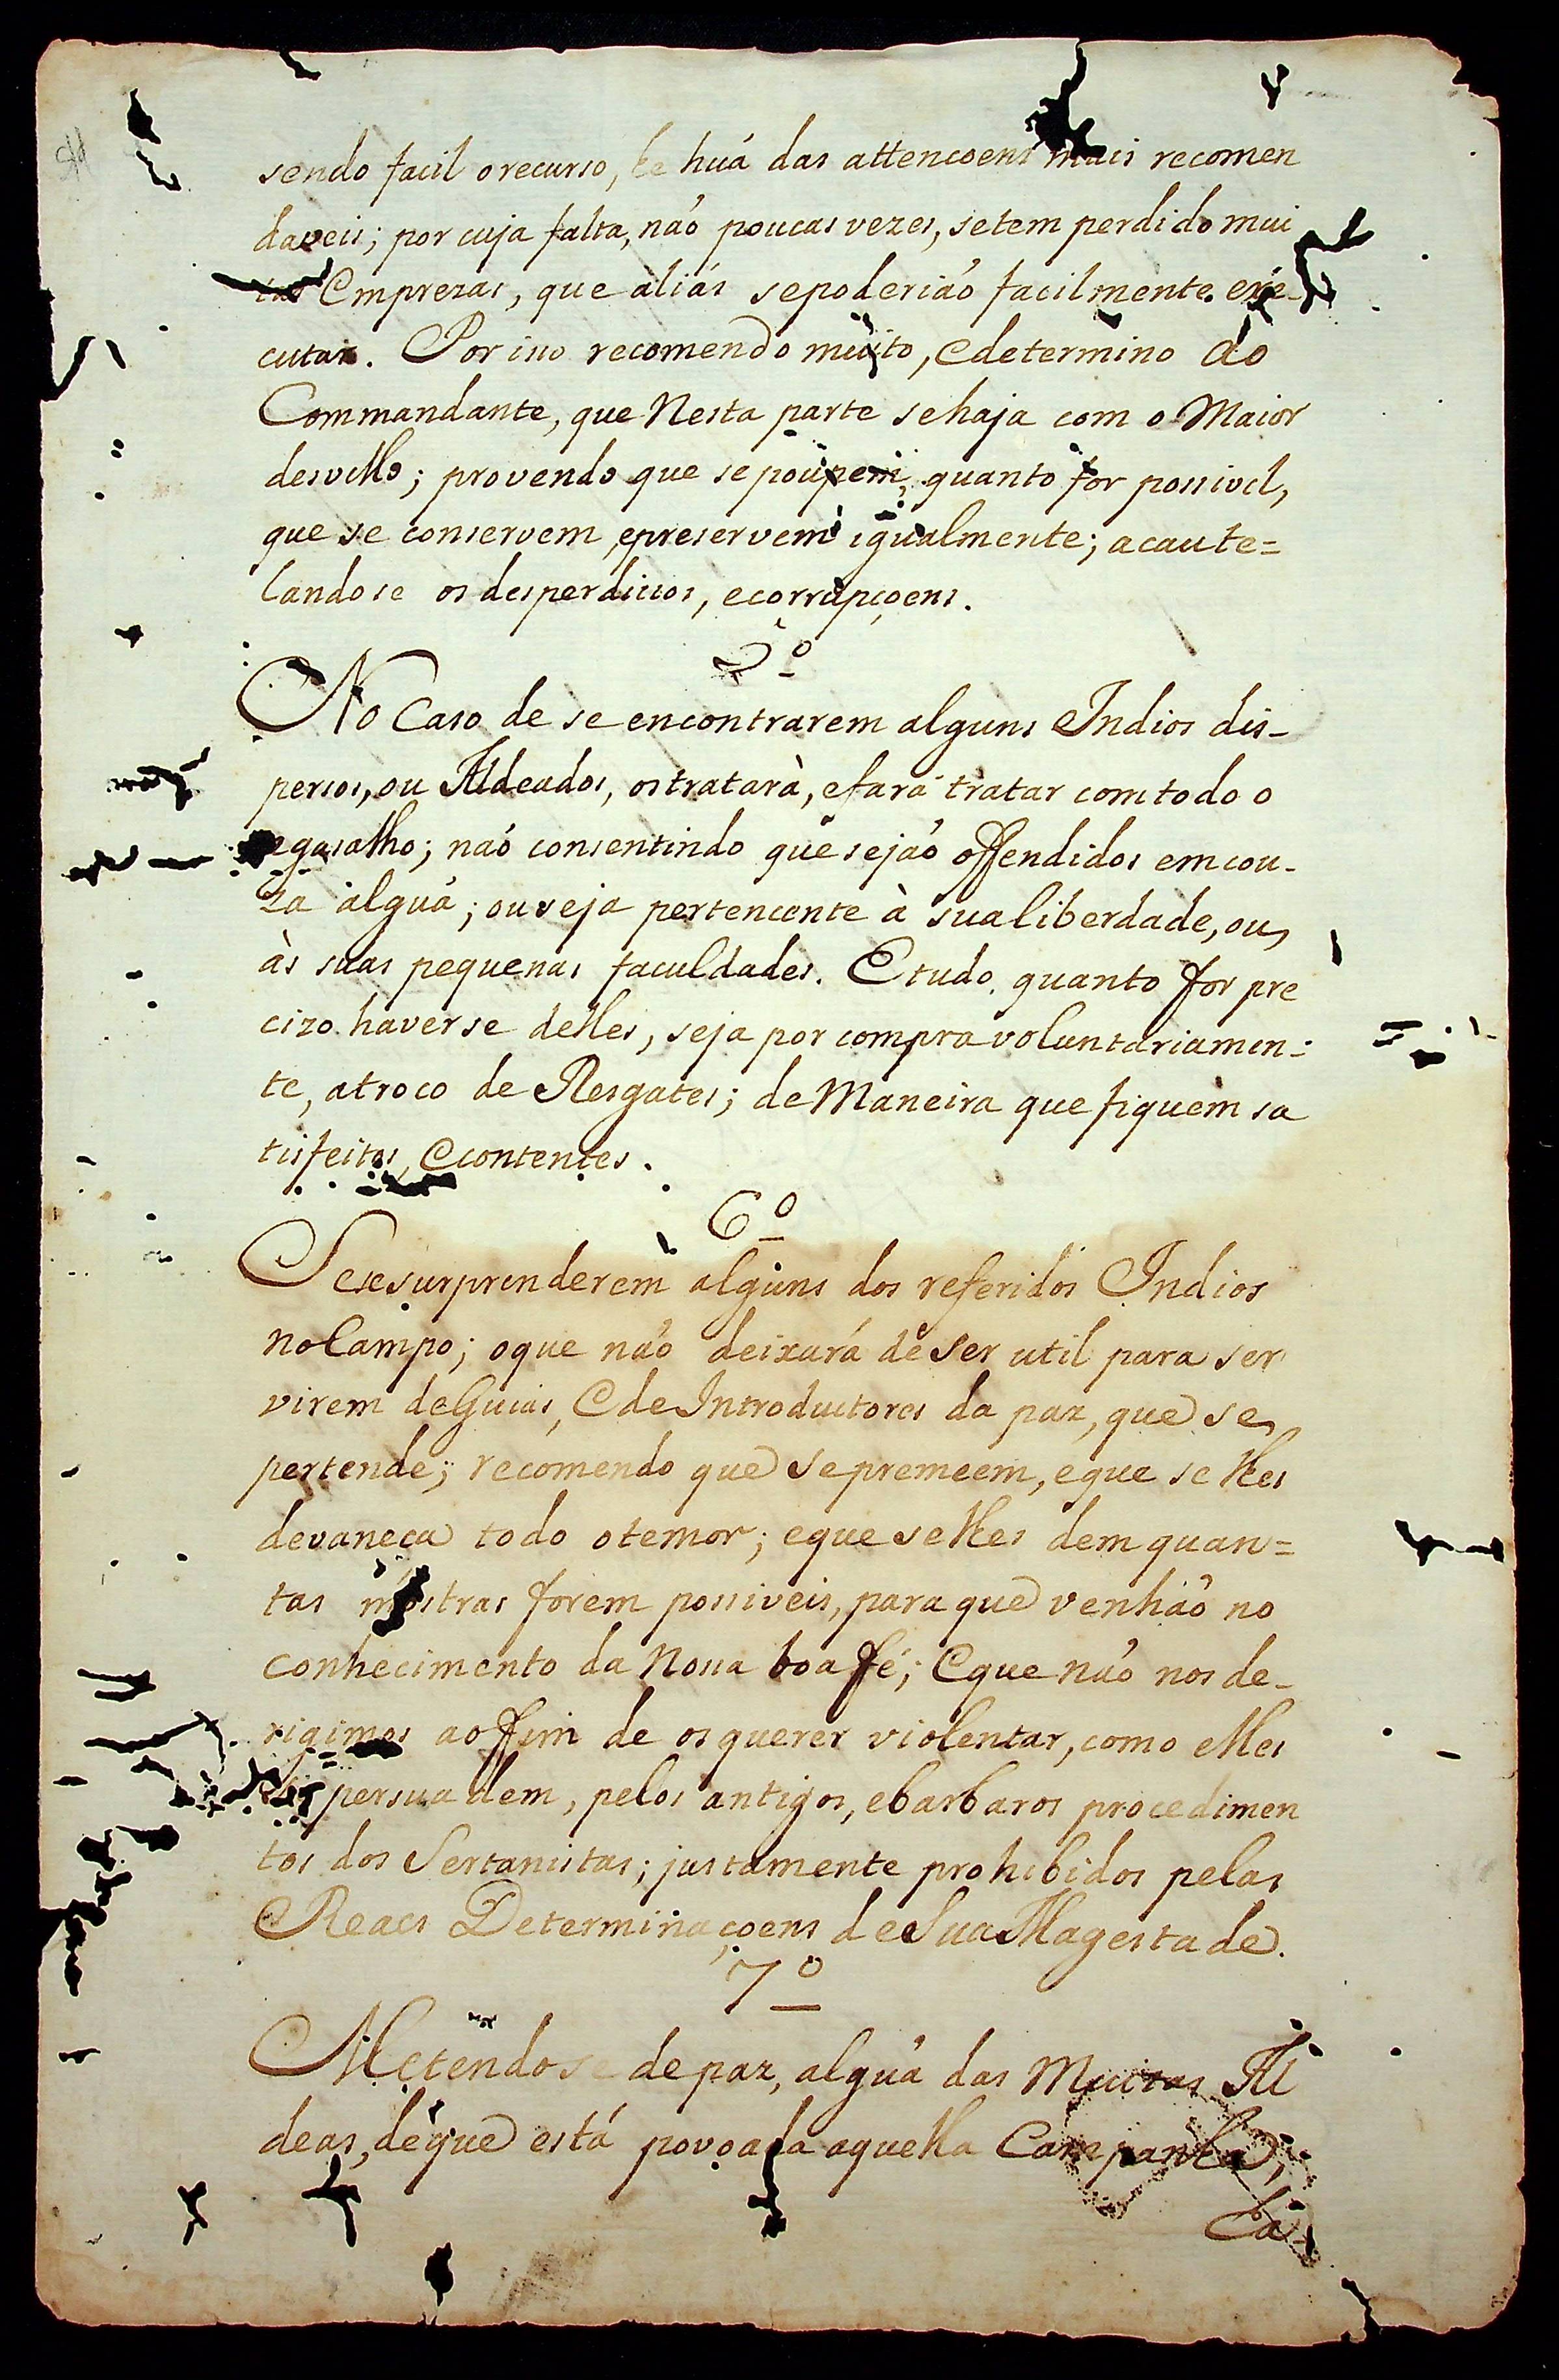 sendo facil o recurso, he huá das attencoens mais recomen
daveis; por cuja falta, naó poucas vezes, setem perdido mui
tas Emprezas, que aliás sepoderiaó facilmente. exe-
cutar. Por isso recomendo muito, e determino ao
Commandante, que Nesta parte sehaja com o Maior
desvello; provendo que se poupem, quanto for possivel,
que se conservem, epreservem igualmente; acaute=
landose os desperdicios, ecorrupçoens.
5º
No Caso de se encontrarem alguns Indios dis-
persos, ou Aldeados, ostratarà, efará tratar comtodo o
agasalho; naó consentindo que sejaó offendidos emcou-
za alguá; ouseja pertencente à sualiberdade, ou,
às suas pequenas faculdades. Etudo quanto for pre
cizo haverse delles, seja por compra voluntariamen-
te, atroco de Resgates; de Maneira que fiquem sa
tisfeitos, Econtentes.
6º
Sesesurprenderem alguns dos referidos Indios
no Campo; oque naó deixará de ser util para ser
virem deGuias, E de Introductores da paz, que se
pertende; recomendo que sepremeem, eque se lhes
devaneça todo otemor; eque selhes dem quan=
tas mostras forem possiveis, para que venhaó no
conhecimento da Nossa boa fé; Eque naó nos de-
rigimos ao fim de os querer violentar, como elles
se persuadem, pelos antigos, ebarbaros procedimen
tos dos Sertanistas; justamente prohibidos pelas
Reaes Determinaçoens deSua Magestade.
7º
Metendose de paz, alguá das Muitas Al
deas, deque está povoada aquella Campanha;